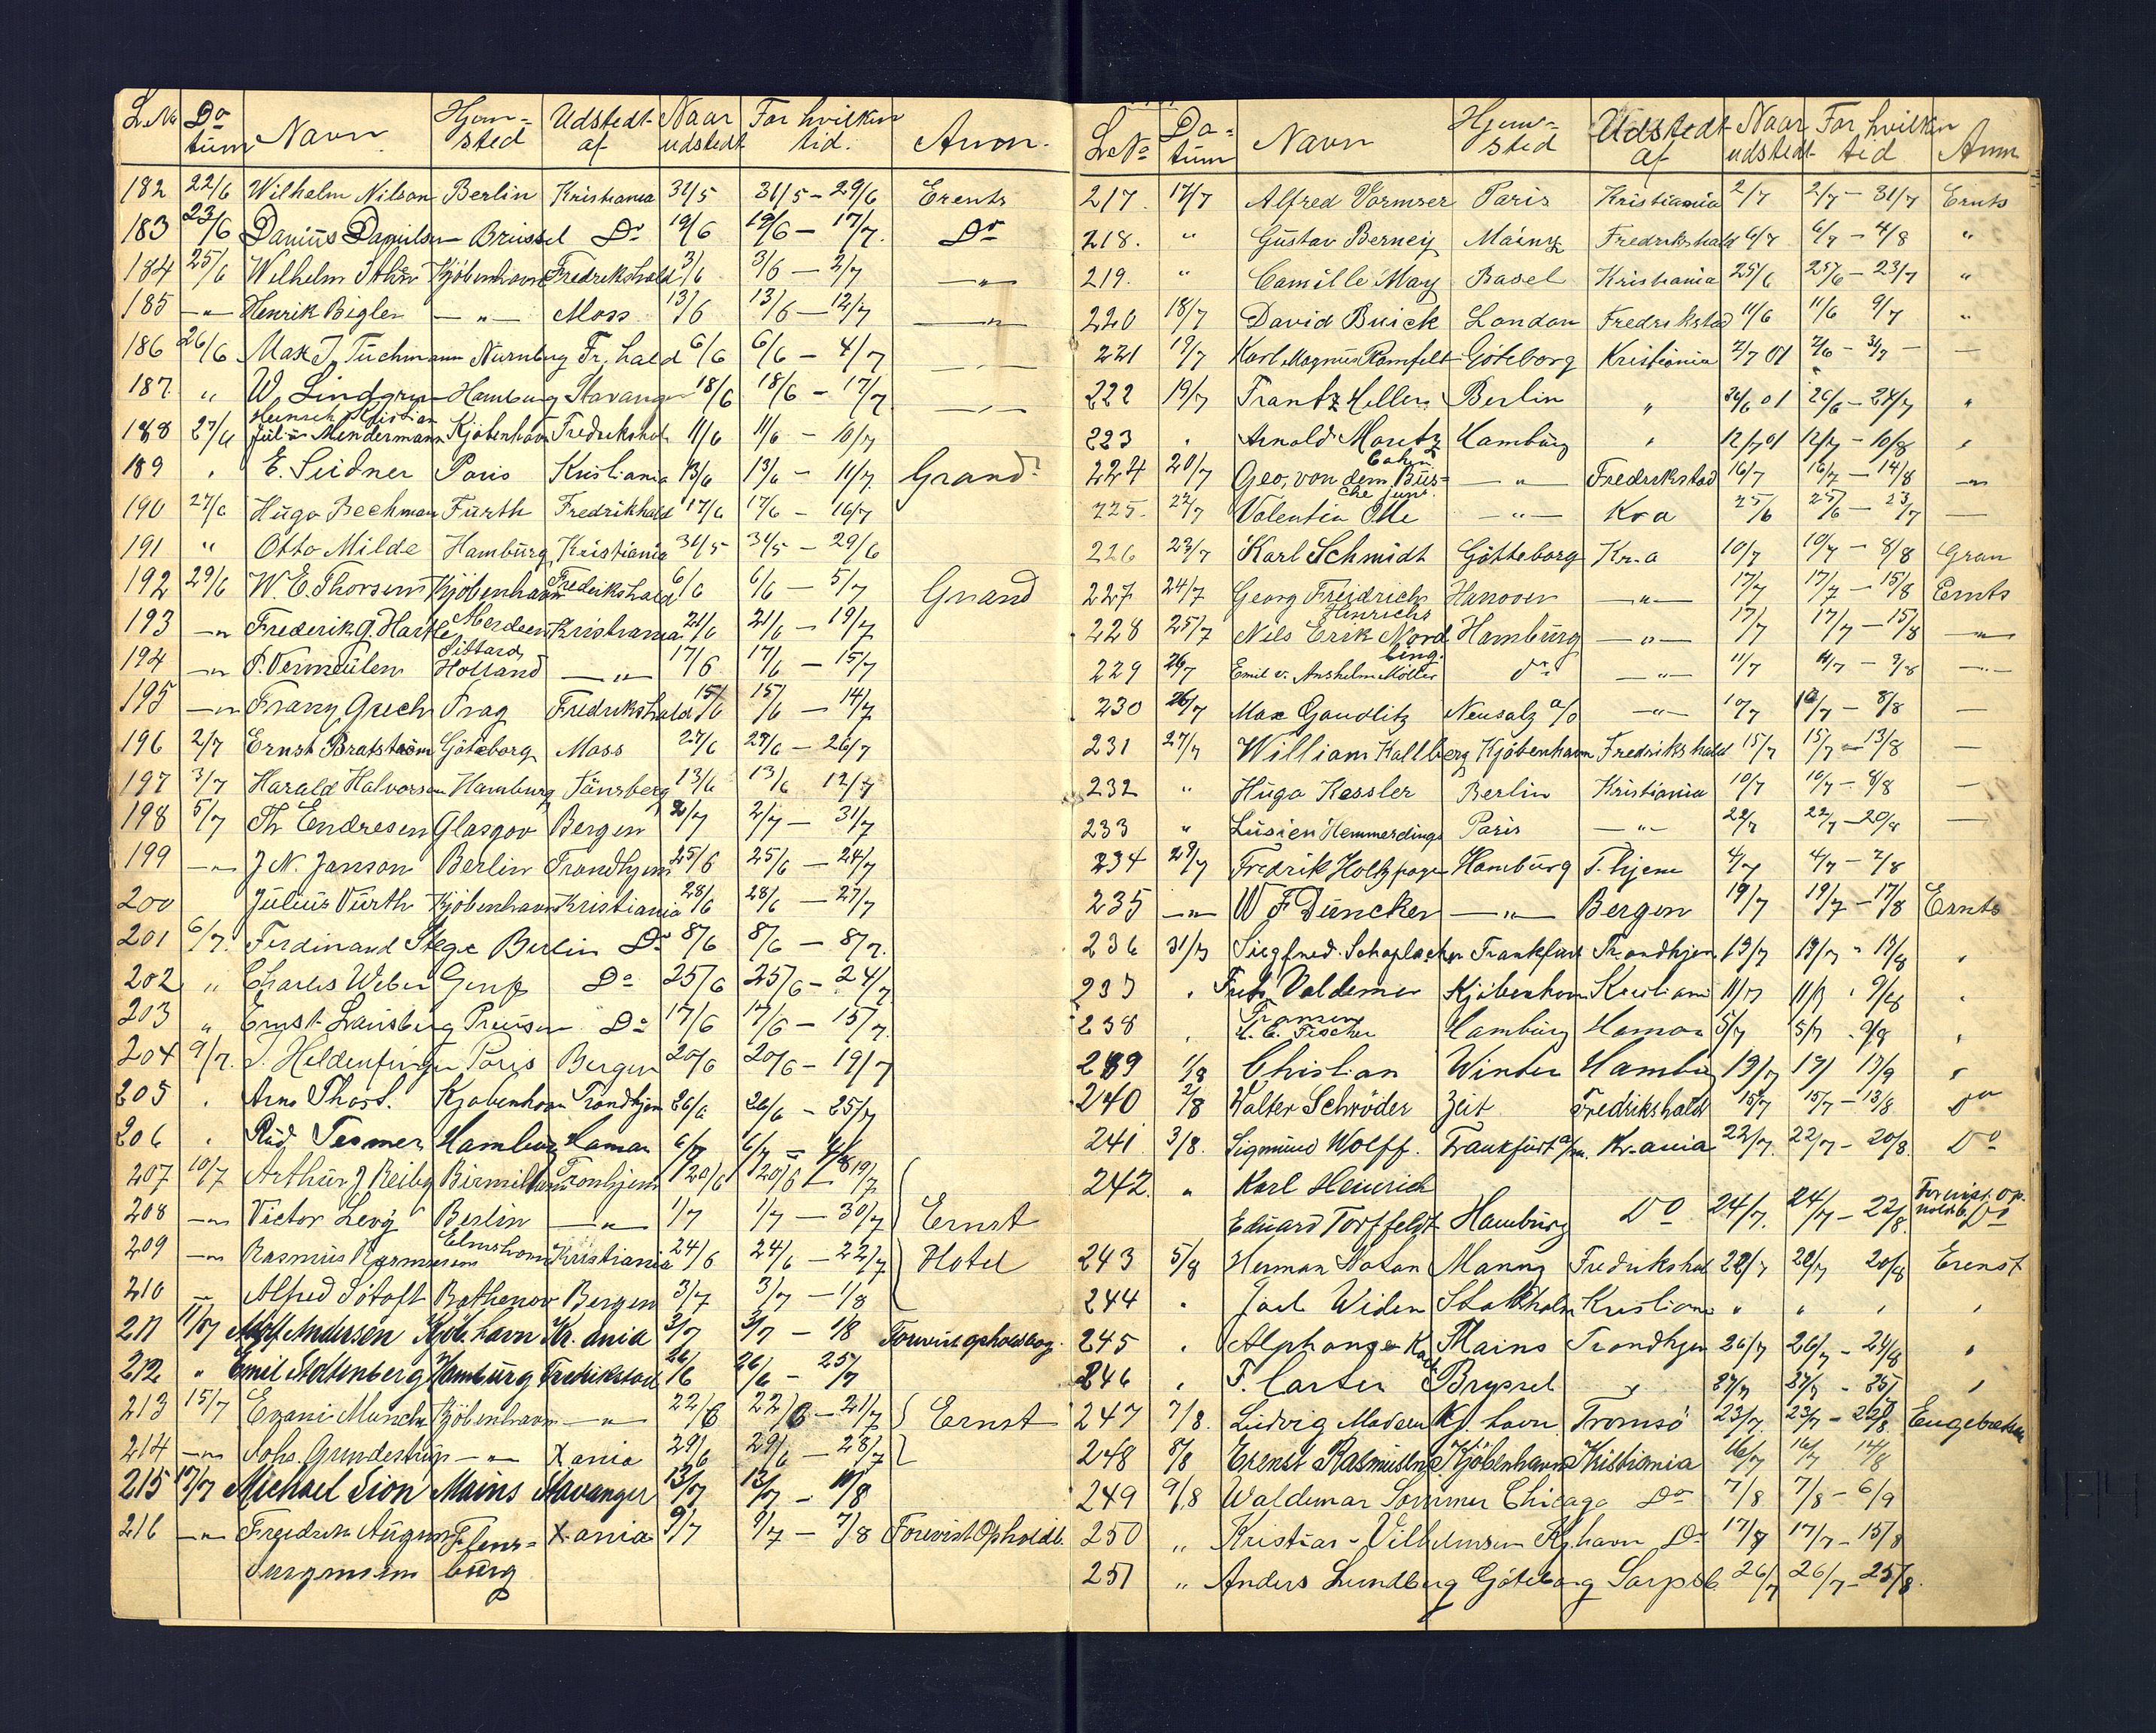 L. No Da- tum Navn Hjem- sted Udstedt af Naar udstedt For hvilken tid. Anm.
182 22/6 Wilhelm Nilson Berlin Kristiania 31/5 31/5 – 29/6 Ernts
183 23/6 Danius Danielsen Brüssel Do 19/6 19/6 – 17/7. Do
184 25/6 Wilhelm Kjöbenhavn Fredrikshald 3/6 3/6 – 2/7 — " —
185 — " — Henrik Bigler — " — Moss 13/6 13/6 – 12/7 — " —
186 26/6 Max J. Tuchmann Nurnberg Fr. hald 6/6 6/6 – 4/7 — " —
187. " W. Lindgren Hamburg Stavanger 18/6 18/6 – 17/7 — " —
188 27/6 Heinrich Kristian Julius Mendermann Kjöbenhavn Fredrikshal 11/6 11/6 – 10/7
189 " E. Seidner Paris Kristiania 13/6 13/6 – 11/7 Grand
190 27/6 Hugo Bechman Furth Fredrikhald 17/6 17/6 – 16/7
191 " Otto Milde Hamburg Kristiania 31/5 31/5 – 29/6
192 29/6 W. E. Thorsen Kjöbenhavn Fredrikshald 6/6 6/6 – 5/7 Grand
193 — " Frederik G. Aberdeen Kristiania 21/6 21/6 – 19/7
194 — " P. Vermeulen Sittard Holland — " — 17/6 17/6 – 15/7
195 — " Franz Grech Prag Fredrikshald 15/6 15/6 – 14/7
196 2/7 Ernst Bratström Göteborg Moss 27/6 27/6 – 26/7
197 3/7 Harald Halvorsen Hamburg Tönsberg 13/6 13/6 12/7
198 5/7 Th Endresen Glasgov Bergen 2/7 2/7 – 31/7
199 — " J. N. Janson Berlin Trondhjem 25/6 25/6 – 24/7
200 Julius Vürth Kjöbenhavn Kristiania 28/6 28/6 – 27/7
201 6/7. Ferdinand Stege Berlin Do 8/6 8/6 – 8/7.
202 " Charles Weber Genf Do 25/6 25/6 – 24/7
203 " Ernst Lausberg Preusen Do 17/6 17/6 – 15/7.
204 9/7. J. Heldenfinger Paris Bergen 20/6 20/6 – 19/7
205 " Arno Thost. Kjøbenhavn Trondhjem 26/6 26/6 – 25/7
206 " Rud Tesmer Hamburg Hamar 6/7 6/7 – 4/8
207 10/7 Arthur J Reiby Tronhjem 20/6 20/6 – 19/7
208 — " — Victor Levy Berlin — " — 1/7 1/7 – 30/7 Ernst
209 — " — Rasmus Rasmussen Elmshorn Kristiania 24/6 24/6 – 22/7 Hotel
210 — Alfred Sötoft Rathenov Bergen 3/7 3/7 – 1/8
211 11/7 Adolf Andersen Kjöb. havn Kr. ania 3/7 3/7 – 1/8 Forevist opholdsbog.
212 " Emil Stoltenberg Hamburg Fredrikstad 26/6 26/6 – 25/7
213 15/7 Kjöbenhavn — " — 22/6 22/6 – 21/7 Ernst
214 — " — Johs. Grundestrup — " — X ania 29/6 29/6 – 28/7
215 17/7 Michael Sion Mains Stavanger 13/7 13/7 – 11/8
216 — " — Fredrik August Flens- X. ania 9/7 9/7 – 7/8 Forevist Opholdb.
Jurgensen burg
L. No Da- tum Navn Hjem- sted Udstedt af Naar udstedt For hvilken tid Anm
217. 17/7 Alfred Vormser Paris Kristiania 2/7 2/7 – 31/7 Ernts
218. " Gustav Berney Mainz Fredrikshald 6/7 6/7 – 4/8 "
219. " Camille May Basel Kristiania 25/6 25/6 – 23/7 "
220 18/7 David Buick London Fredrikstad 11/6 11/6 9/7 "
221 19/7 Karl Magnus Ramfelt Göteborg Kristiania 2/7 01 —
222 19/7 Frantz Hellers Berlin " 26/6 01 26/6 – 24/7 "
223 " Arnold Moritz Cohn Hamburg " 12/7 01 12/7 – 10/8 "
224 20/7 Geo. von dem Bus- che junr. — " — Fredrikstad 16/7 16/7 – 14/8 — " —
225. 22/7 Valentin Otte — " — Kr a 25/6 25/6 – 23/7 —
226 23/7 Karl Schmidt Götteborg Kr. a 10/7 10/7 – 8/8 Gran
227 24/7 Georg Freidrich Hinrichs Hanover — " — 17/7 17/7 – 15/8 Ernts
228 25/7 Nils Erik Nord berg. Hamburg — " — 17/7 17/7 – 15/8 — " —
229 26/7 Emil v. Anshelm Möller do — " — 11/7 11/7 – 9/8 — " —
230 26/7 Max Gaudlitz Neusalz a/o — " — 10/7 10/7 – 8/8 —
231 27/7 William Kallberg Kjöbenhavn Fredrikshald 15/7 15/7 – 13/8 —
232 " Hugo Kessler Berlin Kristiania 10/7 10/7 – 8/8 —
233 " Lusien Hemmerdinge Paris — " — 22/7 22/7 – 20/8 —
234 29/7 Fredrik Holtz Hamburg T. hjem 4/7 4/7 – 2/8
235 — " — W F Duncker — " — Bergen 19/7 19/7 – 17/8 Ernts
236 31/7 Siegfried Frankfurt Trondhjem 19/7 19/7 " "
237 " Valdemar Fransen Kjöbenhavn Kristiani 11/7 11/7 " 9/8 "
238 " H. C. Fischer Hamburg Hamar 5/7 5/7 "
239 1/8 Chistian Winter Hambu 19/7 "
240 2/8 Walter Schröder Zeit Fredrikshald 15/7 15/7 – 13/8 Do
241 3/8. Sigmund Wolff. Frankfurt a/m. Kr. ania 22/7. 22/7 – 20/8. Do
242. " Karl Heinrich
Eduard Torffeldt Hamburg Do 24/7. 24/7 – 22/8. Do
243 5/8 Herman Natan Manny Fredrikshal 22/7 22/7 20/8 Erenst
244 " Joel Widen Stokholm Kristiani " " " "
245 " Alphonse Mains Trondhjem 26/7 26/7 – 24/8 "
246 " F. Carter Bryssel " 27/7 27/7 – "
247 7/8. Ludvig Madsen Kj. havn Tromsö 23/7. 23/7 – Engebretsen
248 8/8 Erenst Rasmusen Kjöbenhavn Kristiania 16/7 16/7 14/8
249 9/8 Waldemar Sommer Chicago Do 7/8 7/8 – 6/9
250 " Kristian Vilhelmsen Kj. havn Do 17/7 17/7 – 15/8
251 " Anders Lundberg Göteborg Sarpsb. 26/7 26/7 – 25/8.